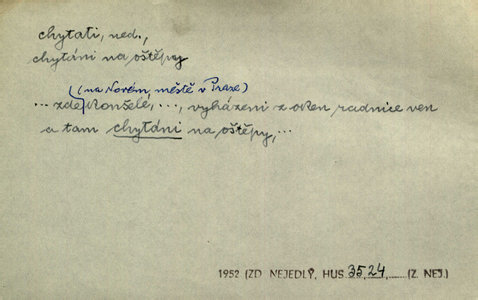 chytati, ned.,
chytáni na oštěpy
(na Novém městě v Praze)
... zde konšelé, ..., vyházeni z oken radnice ven
a tam chytáni na oštěpy, ...
1952 (ZD NEJEDLÝ, HUS 35, 24, ...... (Z. NEJ.)